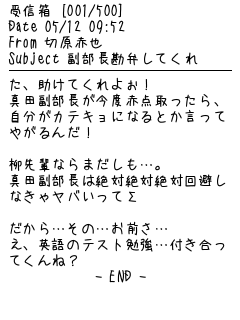 受信箱 [001/500]
Date 05/12 09:52
From 切原赤也
Subject 副部長勘弁してくれ
た、助けてくれよぉ！
真田副部長が今度赤点取ったら、
自分がカテキョになるとか言って
やがるんだ！
柳先輩ならまだしも…。
真田副部長は絶対絶対絶対回避し
なきゃヤバいってΣ
だから…その…お前さ…
え、英語のテスト勉強…付き合っ
てくんね？
- END -